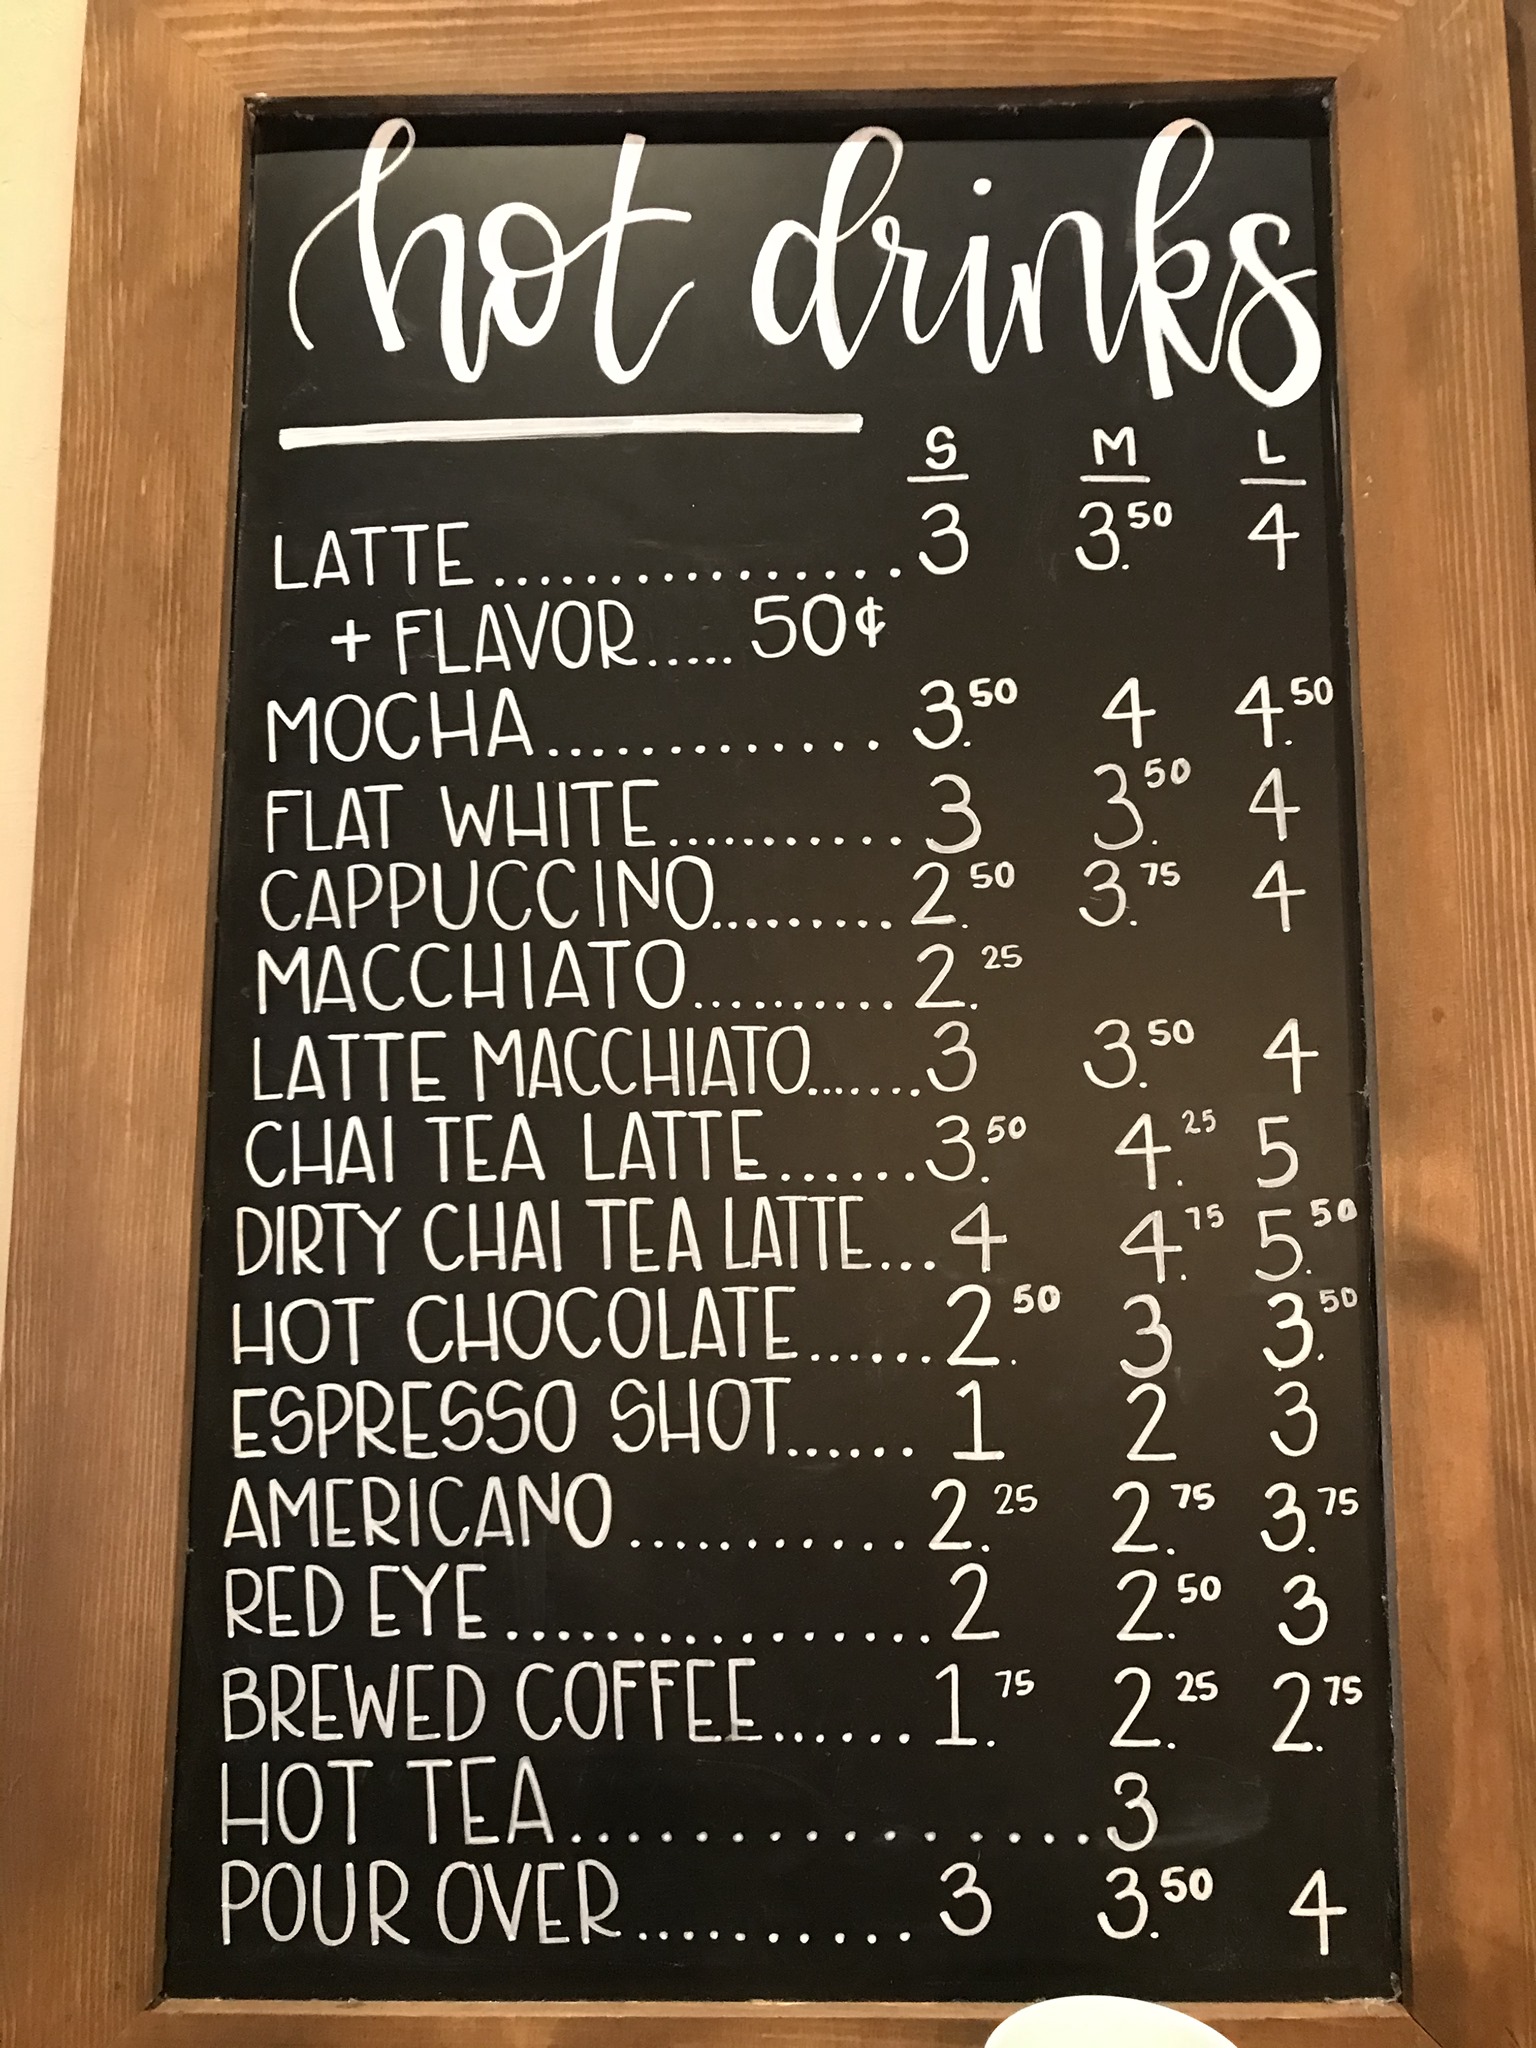 hot drinks
S M L
LATTE................3 3.50 4
+ FLAVOR.....50¢
MOCHA.............3.50 4 4.50
FLAT WHITE...........3 3.50 4
CAPPUCCINO.........2.50 3.75 4
MACCHIATO..........2.25
LATTE MACCHIATO.......3 3.50 4
CHAI TEA LATTE......3.50 4.25 5
DIRTY CHAI TEA LATTE...4 4.75 5.50
HOT CHOCOLATE......2.50 3 3.50
ESPRESSO SHOT......1 2 3
AMERICANO...........2.25 2.75 3.75
RED EYE.................2 2.50 3
BREWED COFFEE......1.75 2.25 2.75
HOT TEA.................3
POUR OVER..........3 3.50 4